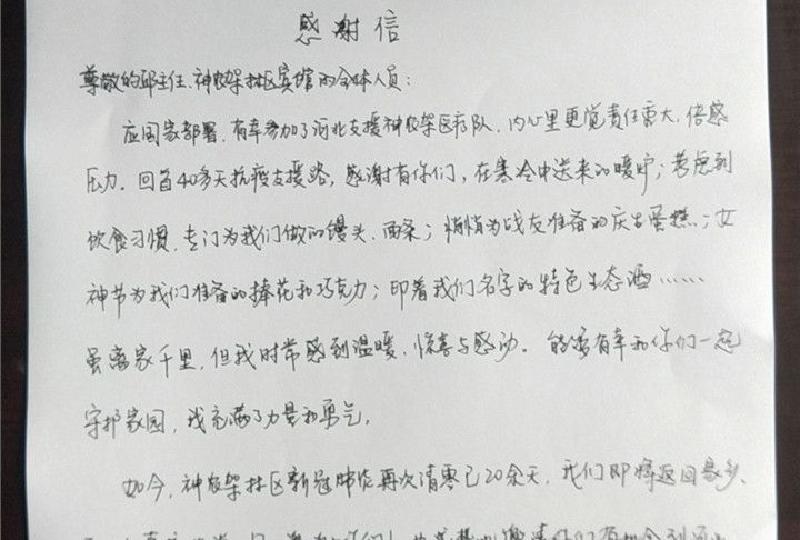 感谢信
尊敬的邱主任、神农架林区宾馆的全体人员：
应国家部署，有幸参加了河北支援神农架医疗队，内心里更觉责任重大，倍感
压力。回首40多天抗疫支援路，感谢有你们，在寒冷中送来的暖炉；考虑到
饮食习惯，专门为我们做的馒头、面条；悄悄为战友准备的庆生蛋糕；女
神节为我们准备的捧花和巧克力；印着我们名字的特色生态酒……
虽离家千里，但我时常感到温暖、惊喜与感动。能够有幸和你们一起
守护家园，我充满了力量和勇气。
如今，神农架林区新冠肺炎再次清零已20余天，我们即将返回家乡、